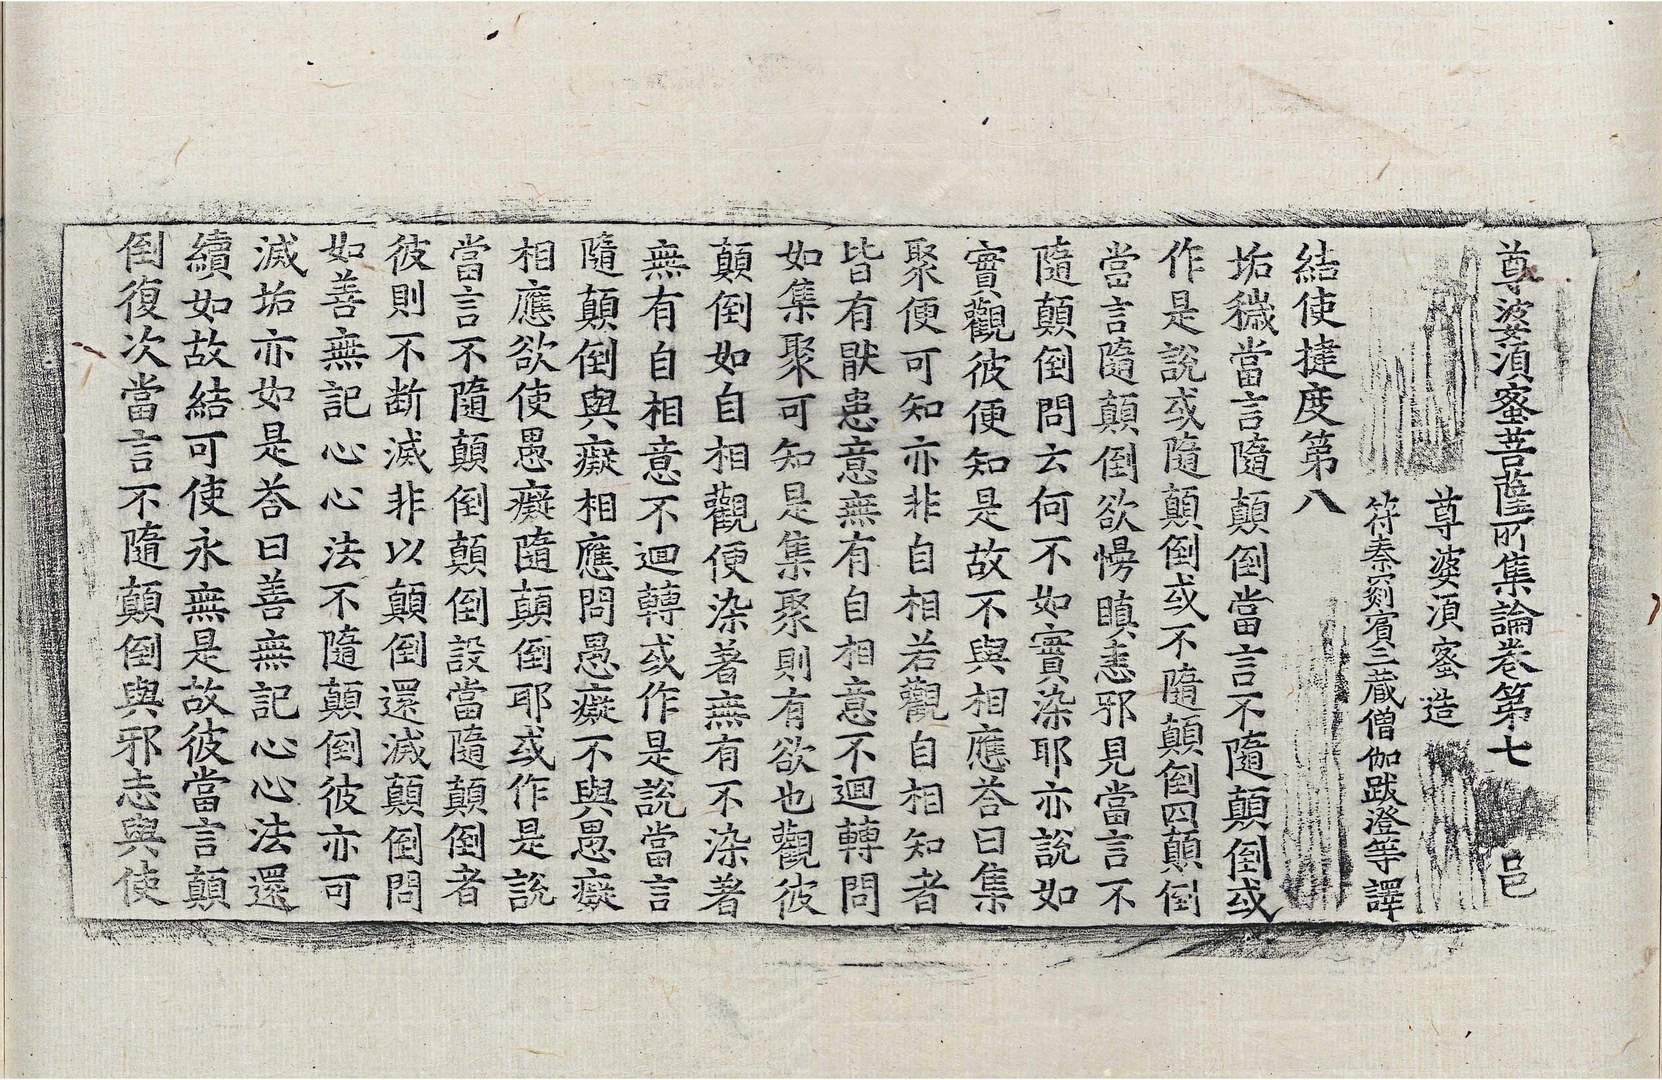 尊婆湏蜜菩薩所集論卷第七　邑
尊婆湏蜜造
符秦罽賓三藏僧伽跋澄等譯
結使揵度第八
垢穢當言隨顛倒當言不隨顛倒或
作是說或隨顛倒或不隨顛倒四顛倒
當言隨顛倒欲慢瞋恚邪見當言不
隨顛倒問云何不如實染耶亦說如
實觀彼便知是故不與相應答曰集
聚便可知亦非自相若觀自相知者
皆有猒患意無有自相意不迴轉問
如集聚可知是集聚則有欲也觀彼
顛倒如自相觀便染著無有不染著
無有自相意不迴轉或作是說當言
隨顛倒與癡相應問愚癡不與愚癡
相應欲使愚癡隨顛倒耶或作是說
當言不隨顛倒顛倒設當隨顛倒者
彼則不断滅非以顛倒還滅顛倒問
如善無記心心法不隨顛倒彼亦可
滅垢亦如是答曰善無記心心法還
續如故結可使永無是故彼當言顛
倒復次當言不隨顛倒與邪志與使